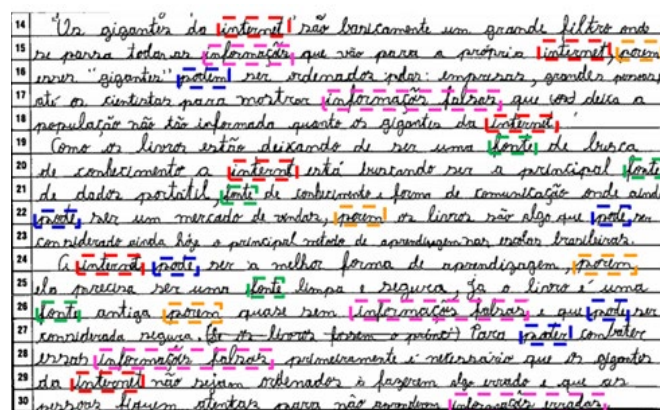 14 "Os gigantes da internet" são basicamente um grande filtro onde
15 se passa todas as informações que vão para a própria internet, porem
16 esses "gigantes" podem ser ordenados por: empresas, grandes pessoas,
17 até os cientistas para mostrar informações falsas que deixa a
18 população não tão informada quanto os gigantes da internet.
19 Como os livros estão deixando de ser uma fonte de busca
20 de conhecimento a internet está buscando ser a principal fonte
21 de dados portátil, fonte de conhecimento e forma de comunicação onde ainda
22 pode ser um mercado de vendas, porem os livros são algo que pode ser
23 considerado ainda hoje o principal método de aprendizagem nas escolas brasileiras.
24 A internet pode ser a melhor forma de aprendizagem, porem
25 ela precisa ser uma fonte limpa e segura, ja o livro é uma
26 fonte antiga porem quase sem informações falsas e que pode ser
27 considerada segura. (Se os livros fossem o princi) Para poder combater
28 essas informações falsas, primeiramente é necessário que os gigantes
29 da internet não sejam ordenados à fazerem algo errado e que as
30 pessoas fiquem atentas para não aprenderem informações erradas.